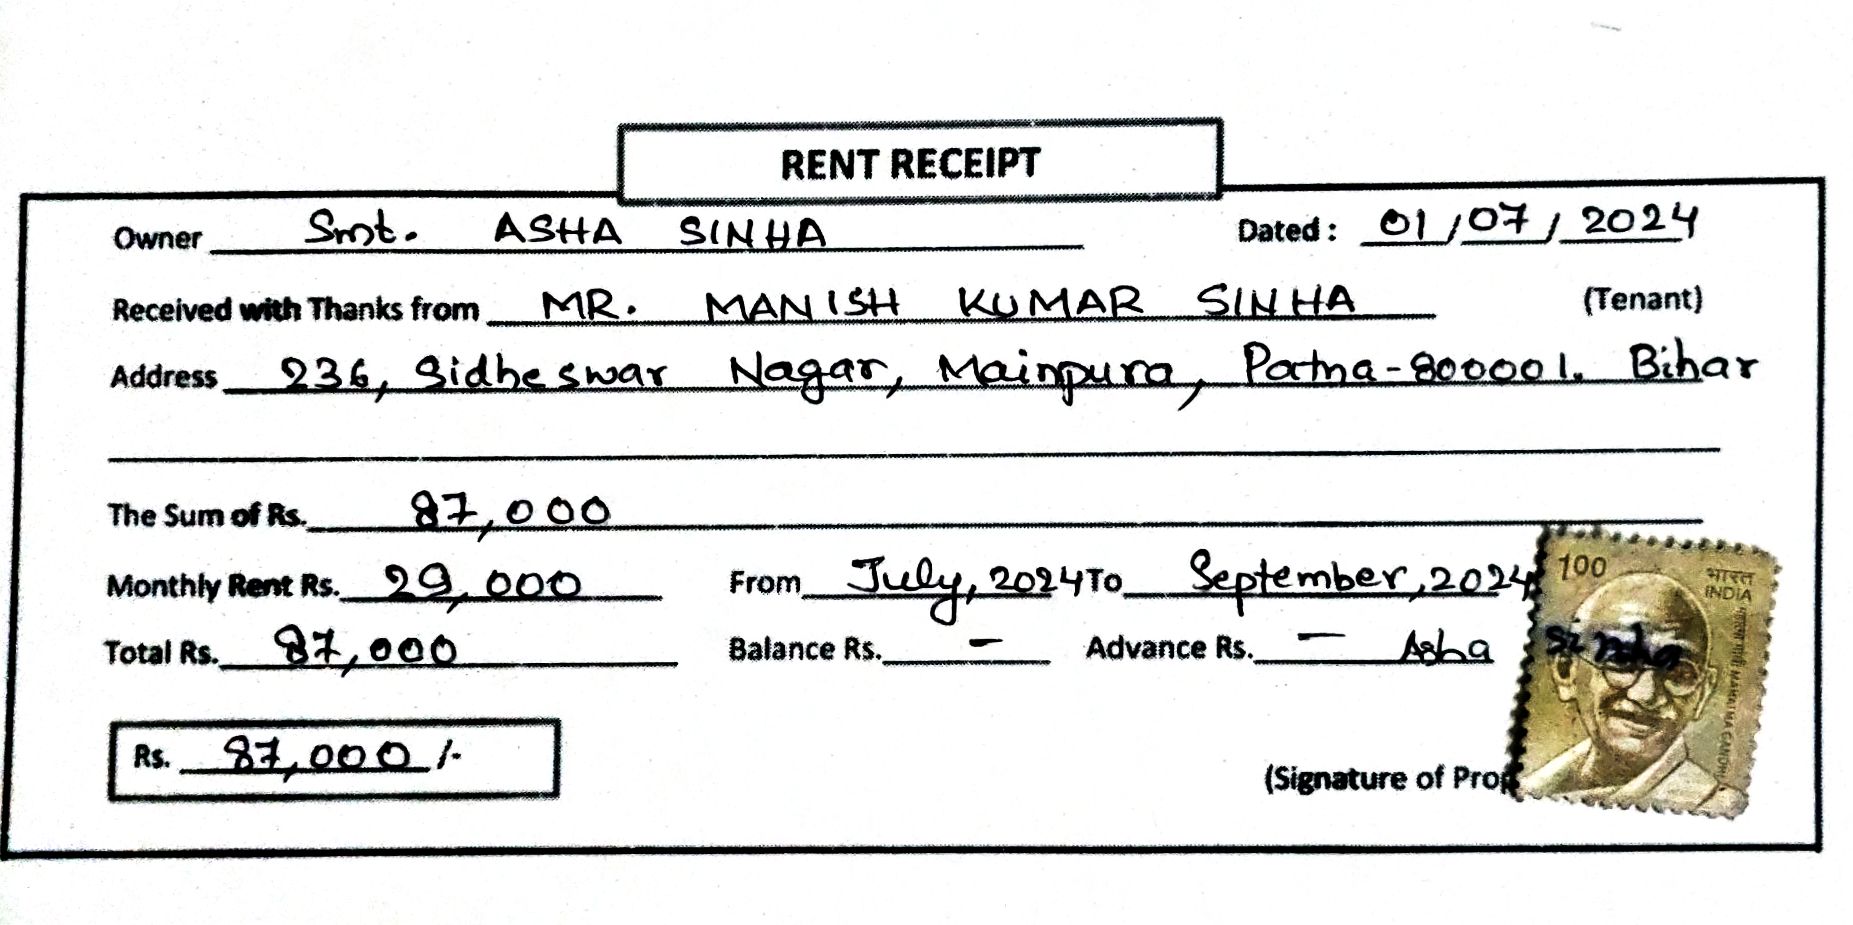 RENT RECEIPT
Owner Smt. ASHA SINHA Dated : 01/07/2024
Received with Thanks from MR. MANISH KUMAR SINHA (Tenant)
Address 236, Sidheswar Nagar, Mainpura, Patna-800001. Bihar
The Sum of Rs. 87,000
Monthly Rent Rs. 29,000 From July, 2024 To September, 2024
Total Rs. 87,000 Balance Rs. - Advance Rs. - Asha Sinha
100 भारत
INDIA
MAHATMA GANDHI
Rs. 87,000/-
(Signature of Prop